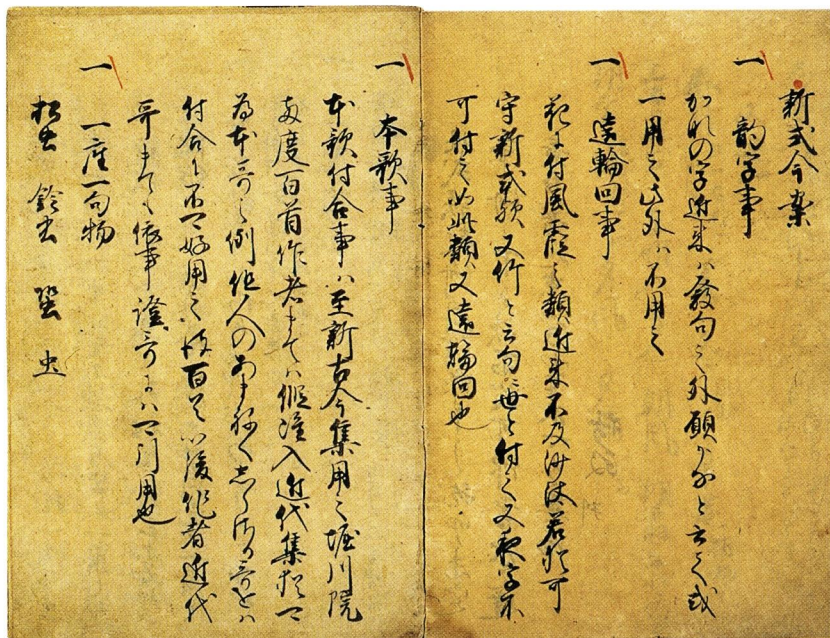 新式今案
一 韵字事
かれの字近来ハ發句之外願かなと云之或
一用之此外ハ不用之
一 遠輪回事
花に付風霞之類近来不及沙汰若猶可
守新式歟 又竹と云句ニ世と付之又夜字不
可付之如此類又遠輪回也
一 本歌事
本歌付合事ハ至新古今集用之堀川院
両度百首作者まてハ雖入近代集猶可
為本哥之例但人のあまねくしらさる哥をハ
付合ニ不可好用之彼百首以後作者近代
哥まても依事證哥にハ可引用也
一 一座一句物
松虫 鈴虫 蛬 虫